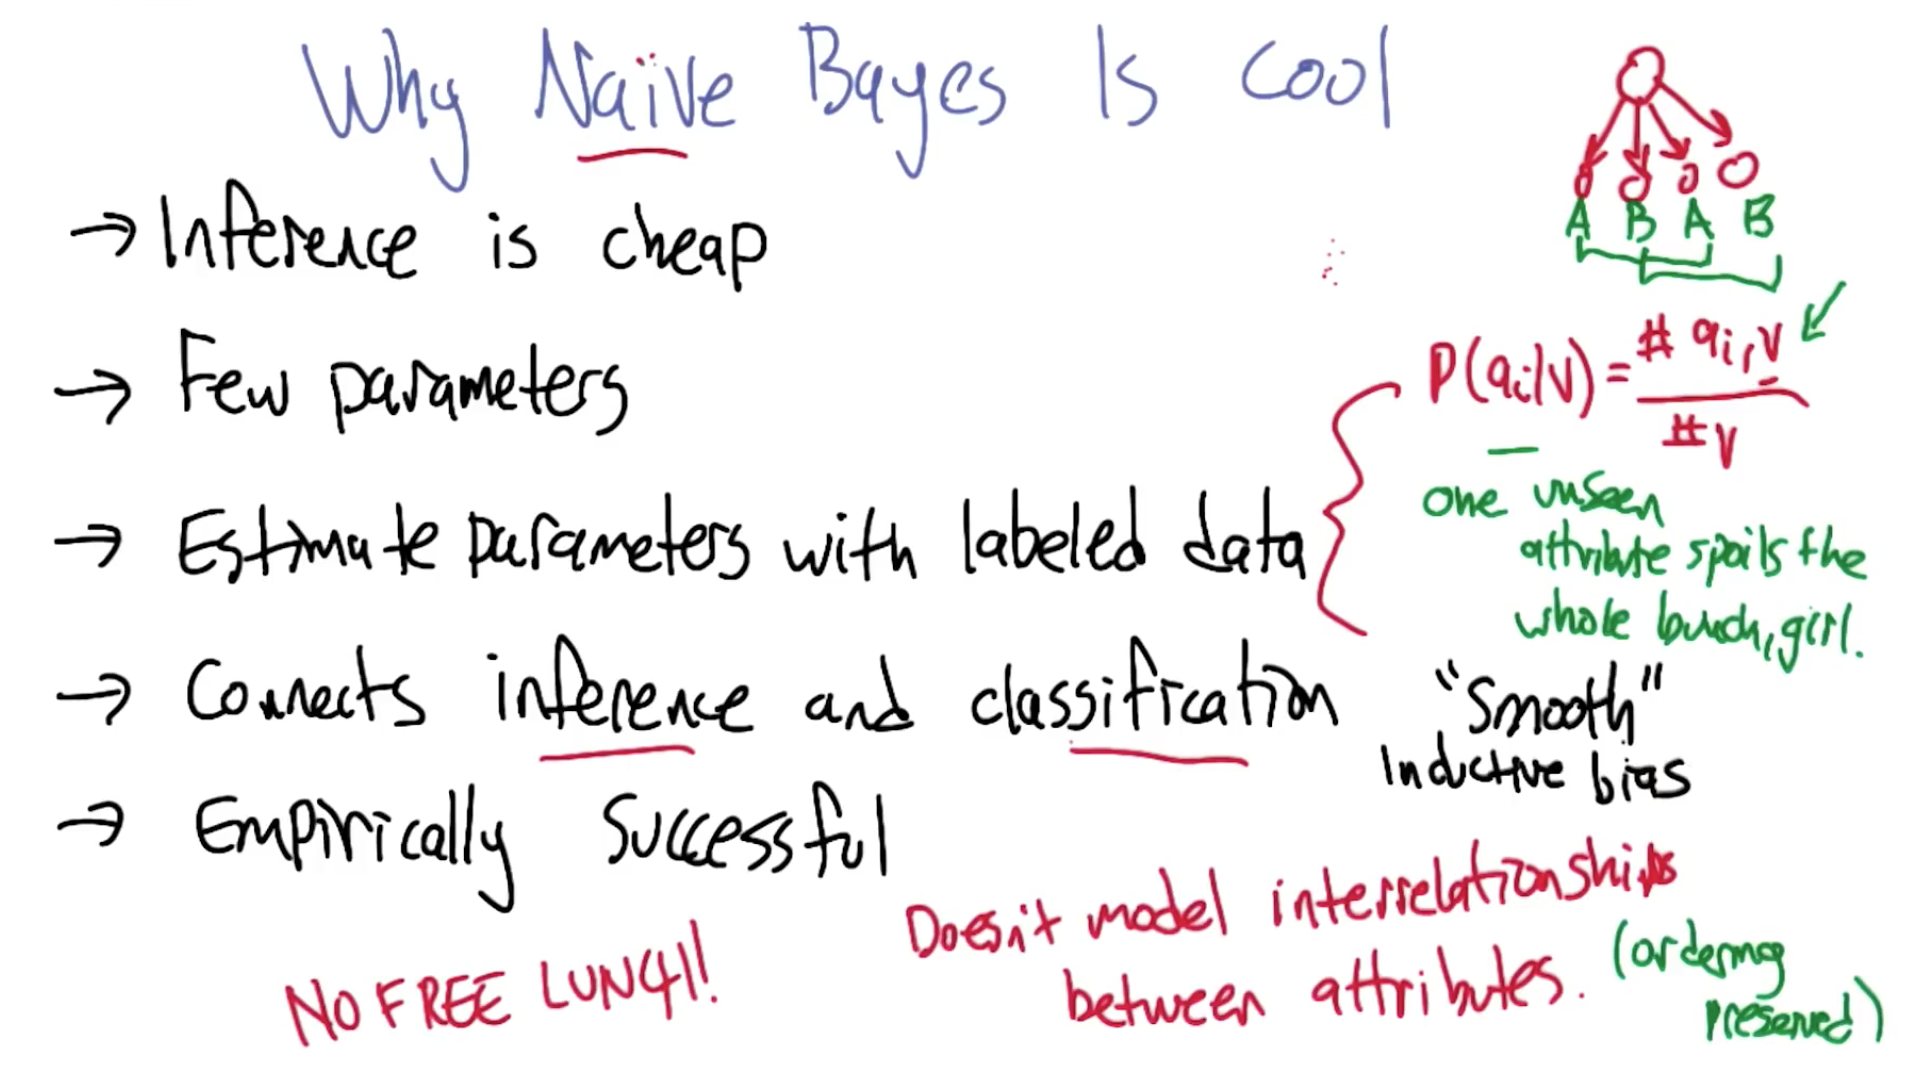 Why Naïve Bayes Is Cool
→ Inference is cheap
→ Few parameters
→ Estimate parameters with labeled data
→ Connects inference and classification
→ Empirically successful
NO FREE LUNCH!
A B A B
P(ai|V) = # ai, V / # V
one unseen
attribute spoils the
whole bunch, girl.
"Smooth"
Inductive bias
Doesn't model interrelationships
between attributes.
(ordering
preserved)